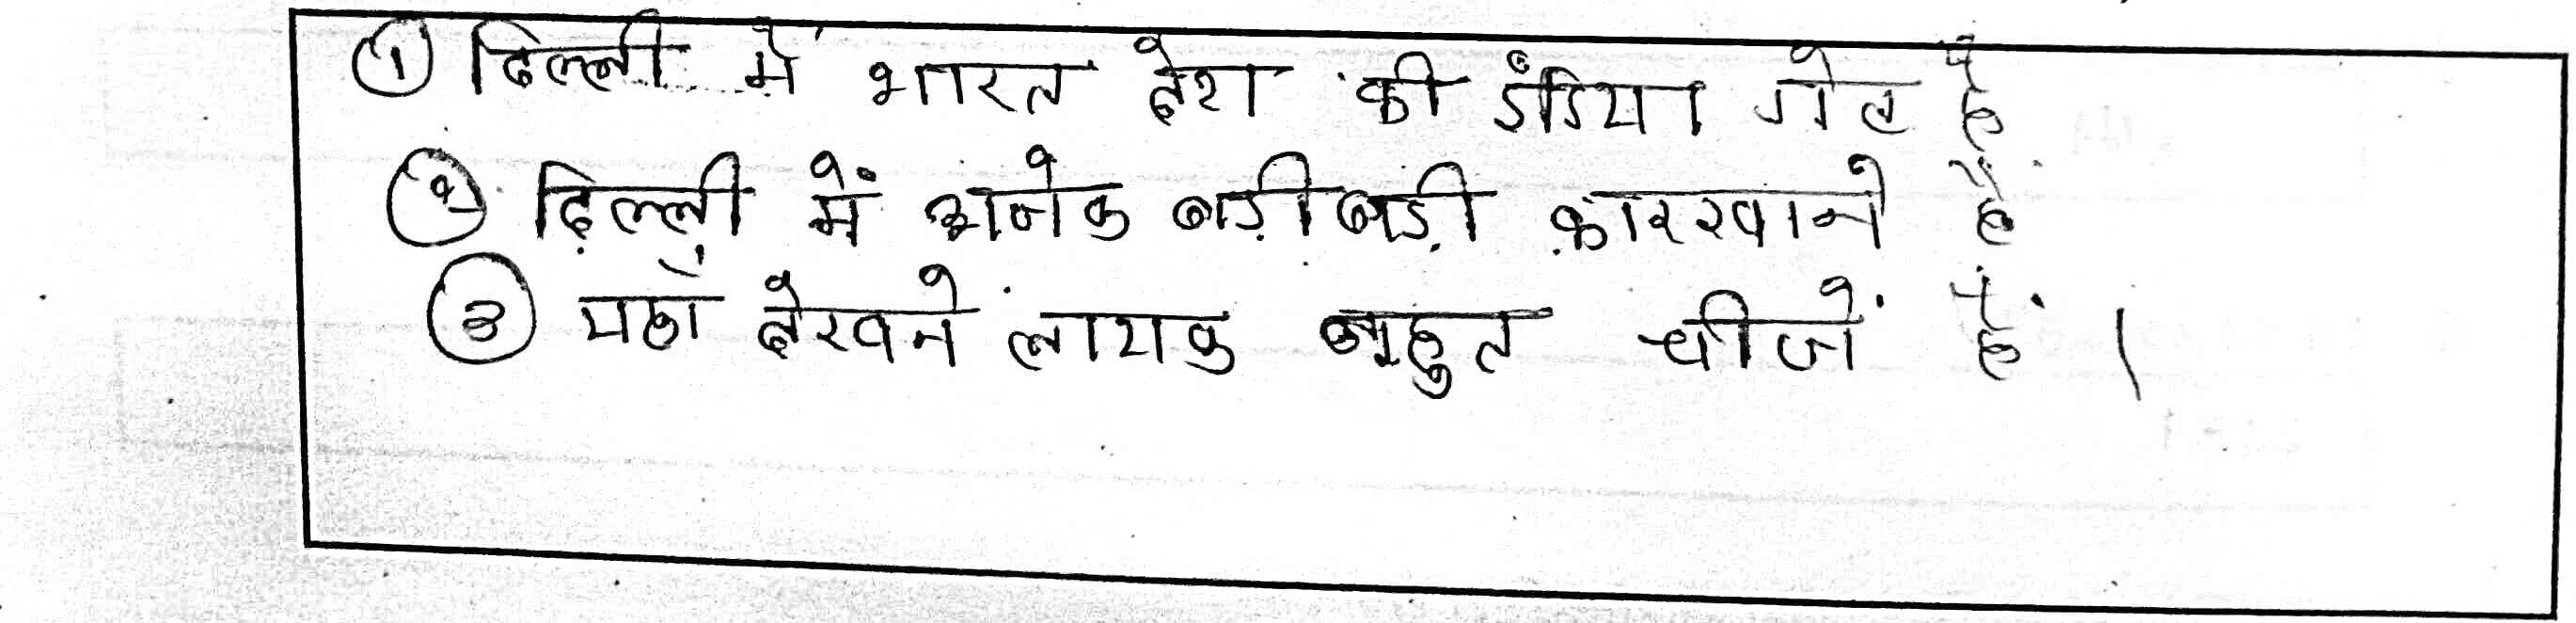 ① दिल्ली में भारत देश की इंडिया गेट है
② दिल्ली में अनेक बड़ी बड़ी कारखाने है
③ यहाँ देखने लायक बहुत चीजें हैं ।